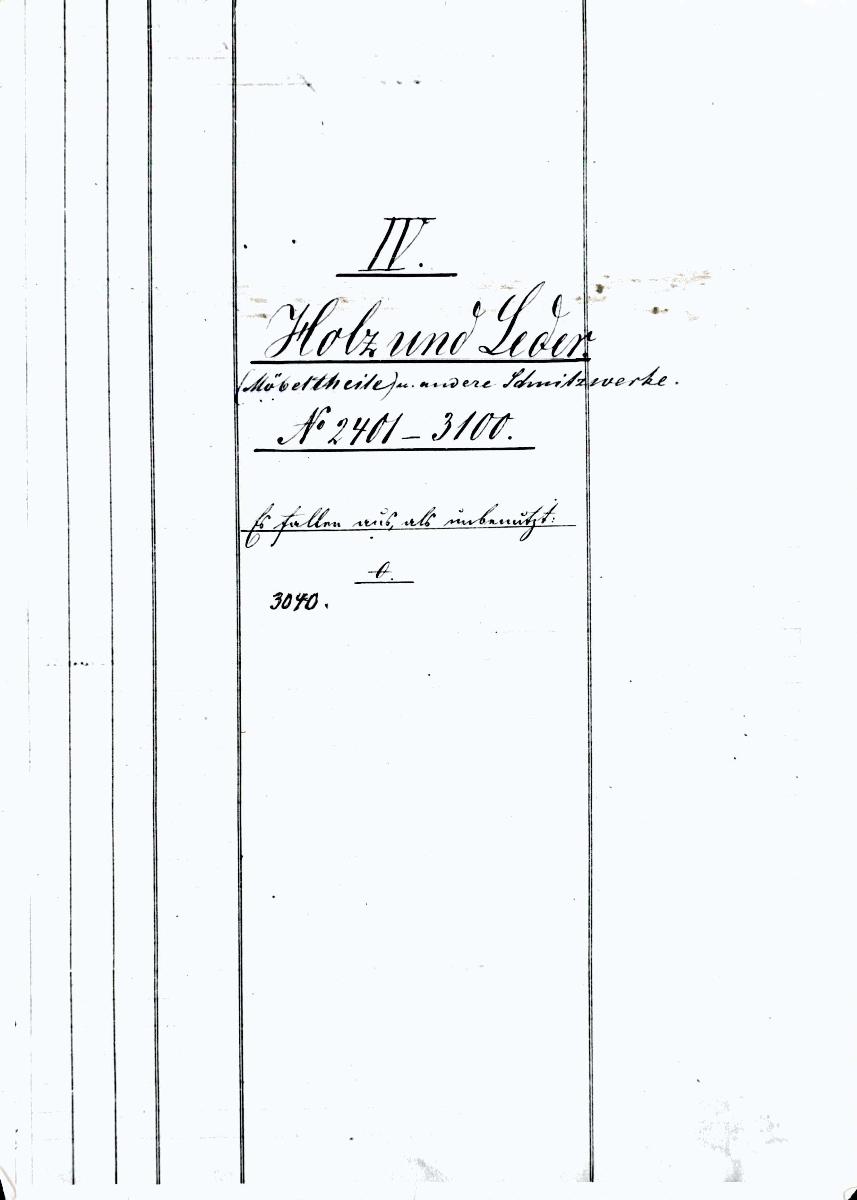 IV.
Holz und Leder.
(Möbeltheile) u. andere Schnitzwerke.
No 2401 – 3100.
Es fallen aus, als unbenutzt:
0.
3040.